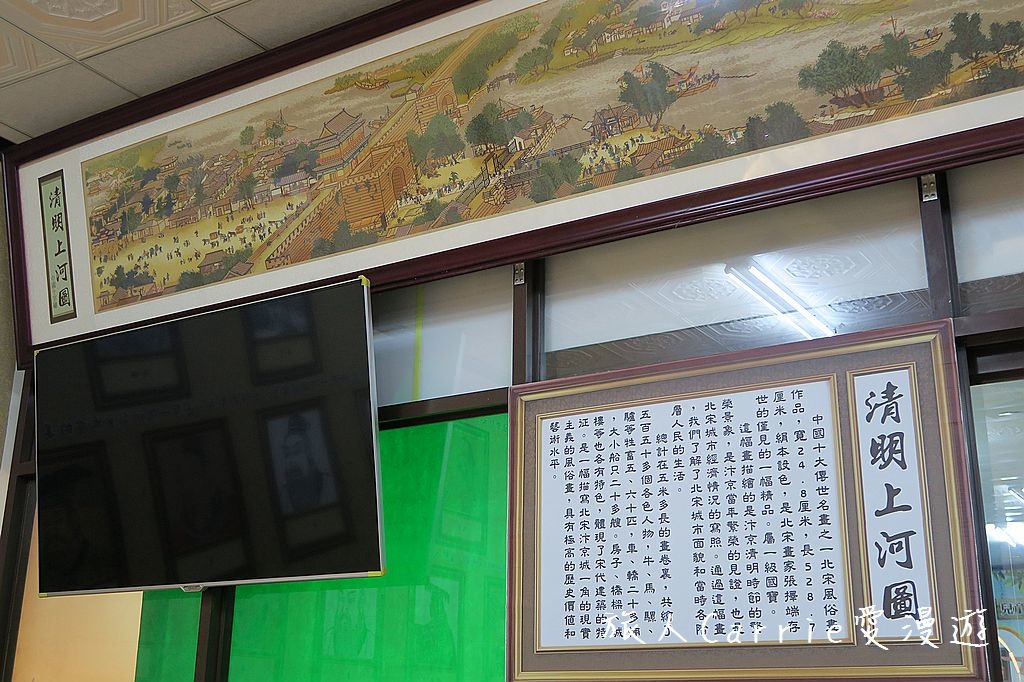 清明上河圖
清明上河圖
中國十大傳世名畫之一北宋風俗畫
作品，寬24.8厘米，長528.7
厘米，絹本設色，是北宋畫家張擇端存
世的僅見的一幅精品。屬一級國寶。
這幅畫描繪的是汴京清明時節的繁
榮景象，是汴京當年繁榮的見證，也是
北宋城市經濟情況的寫照。通過這幅畫
，我們了解了北宋城市面貌和當時各階
層人民的生活。
總計在五米多長的畫卷裏，共繪了
五百五十多個各色人物，牛、馬、騾、
驢等牲畜五、六十匹，車、轎二十多輛
，大小船只二十多艘。房子、橋樑、城
樓等也各有特色，體現了宋代建築的特
征。是一幅描寫北宋汴京城一角的現實
主義的風俗畫，具有極高的歷史價值和
藝術水平。
旅人Carrie愛漫遊